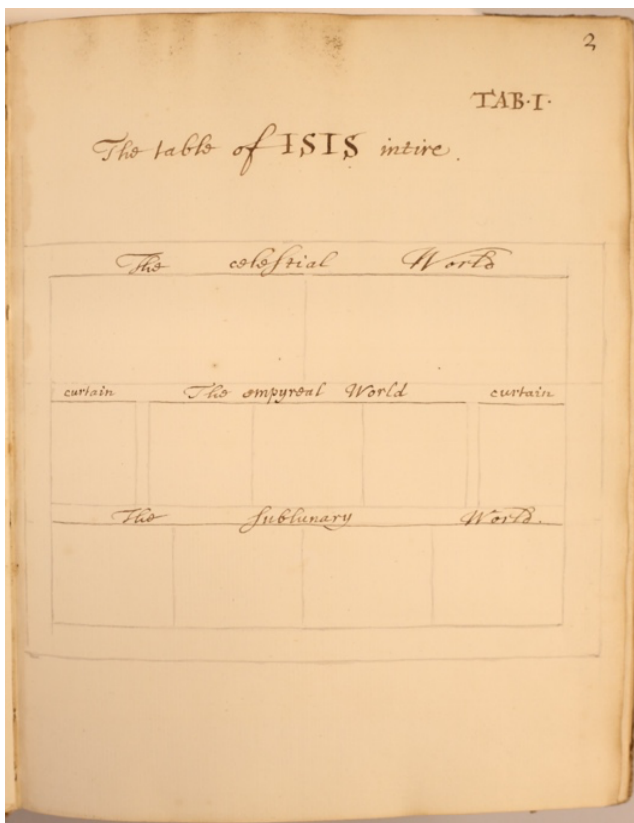 3
TAB·I·
The table of ISIS intire.
The celeſtial World
curtain The empyreal World curtain
The ſublunary World.